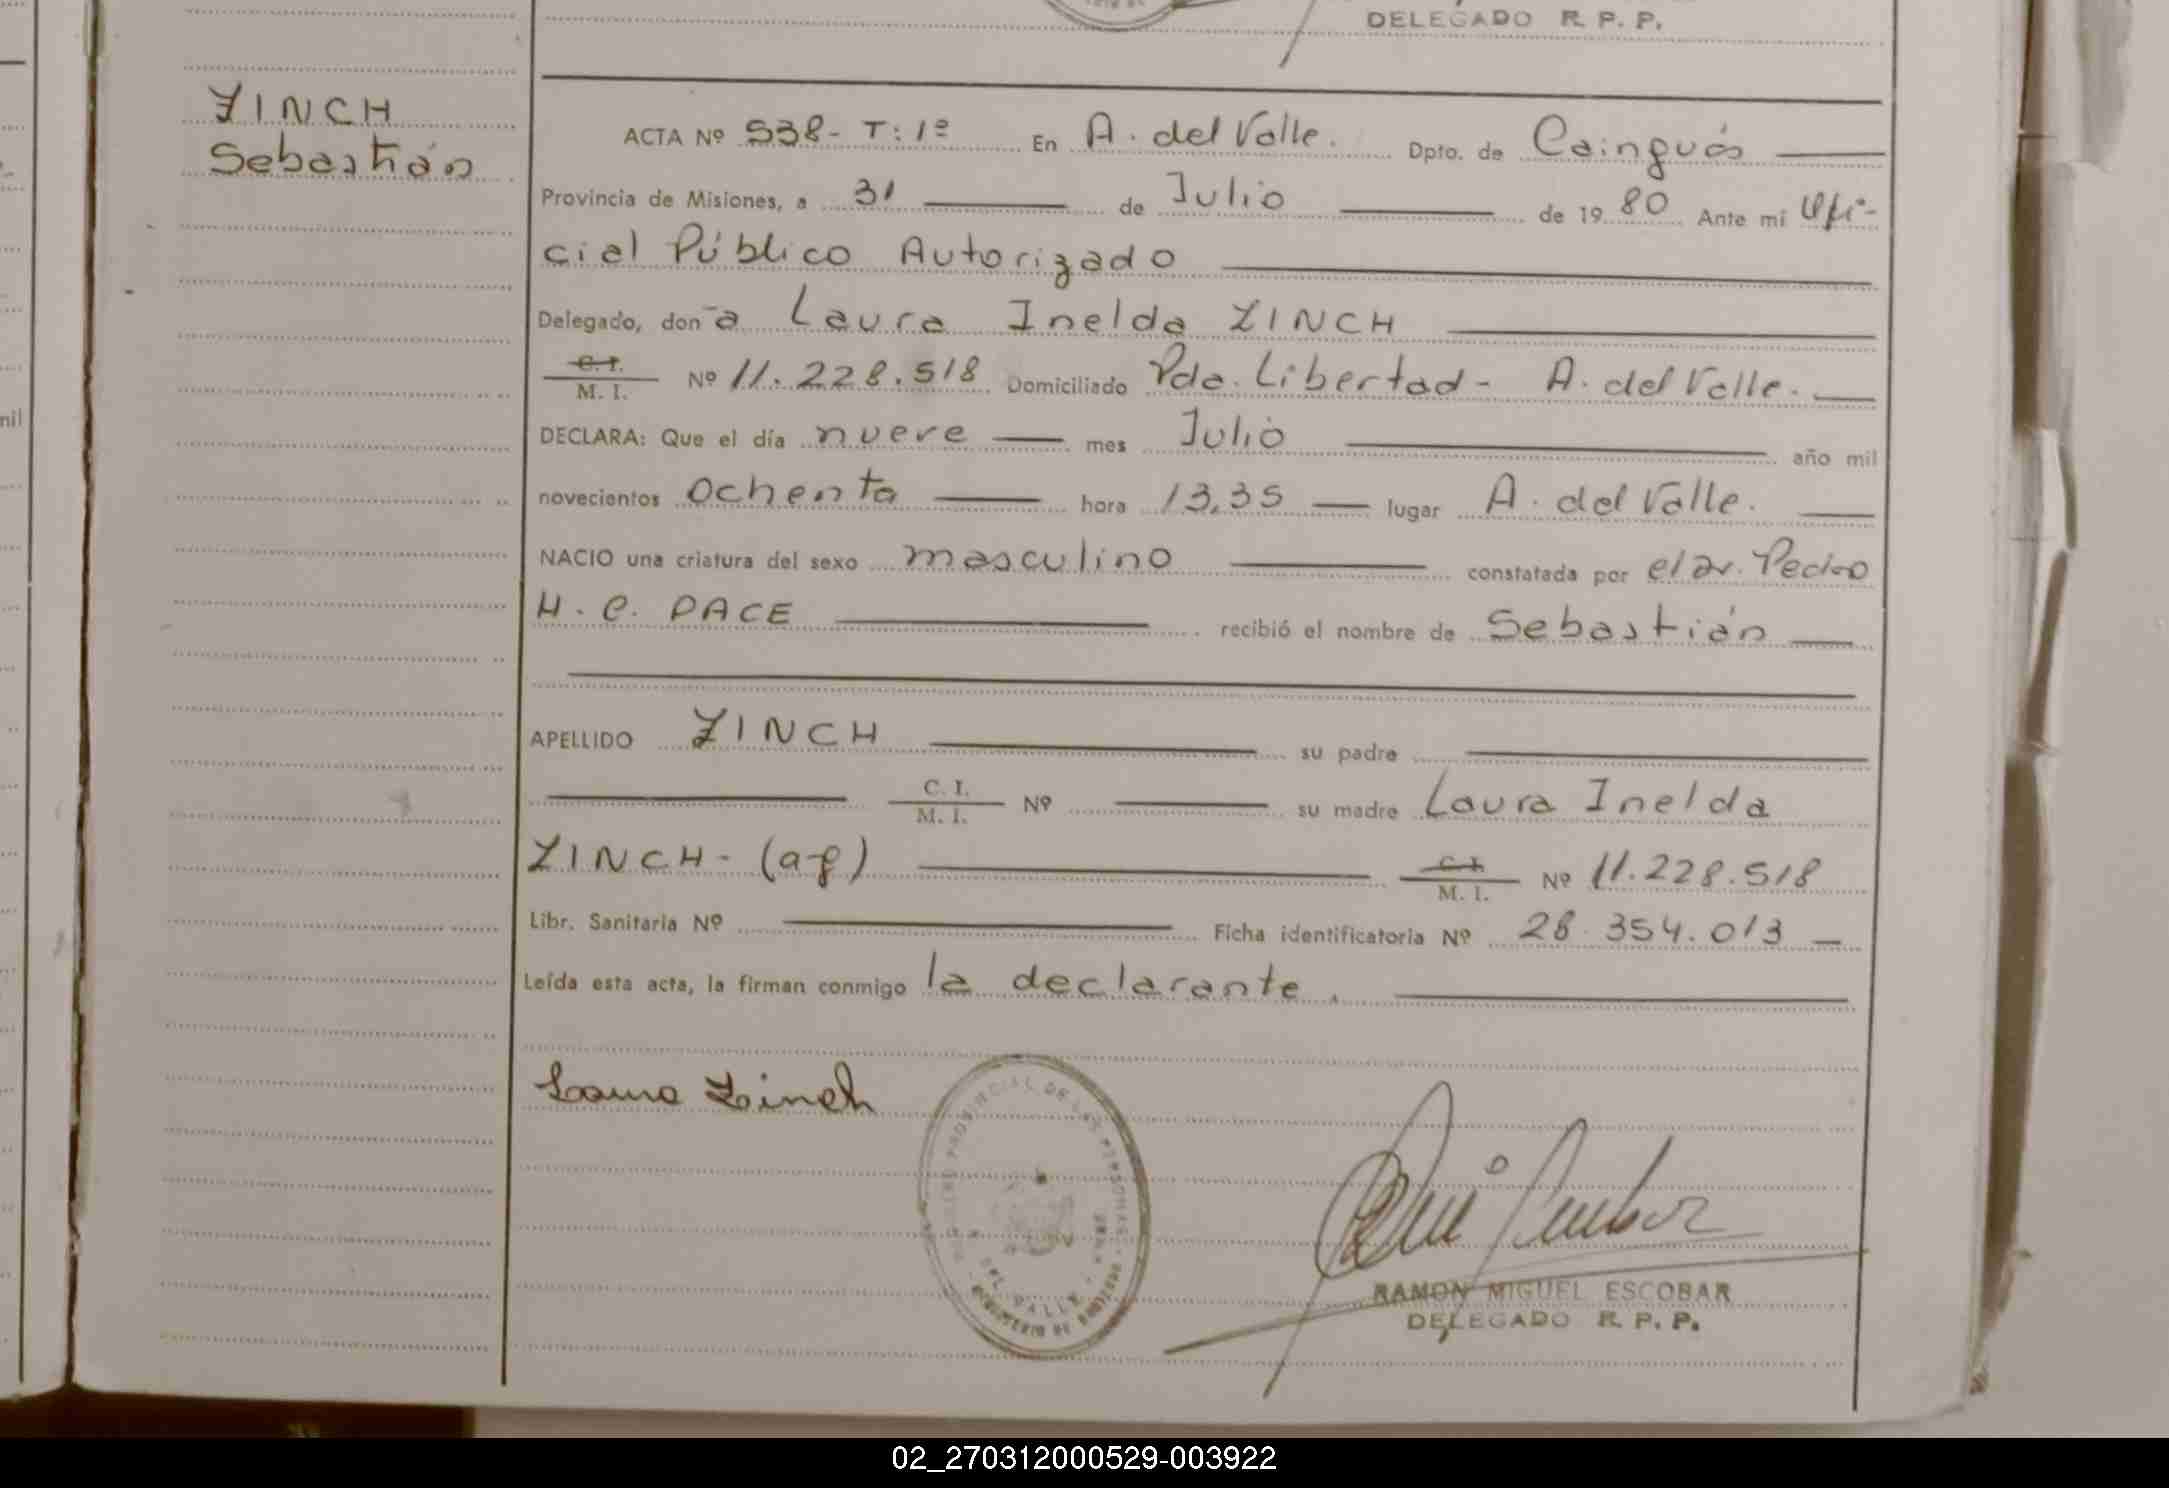 DELEGADO R. P. P.
ZINCH
Sebastián
ACTA Nº 538- T: 1º En A. del Valle. Dpto. de Cainguás
Provincia de Misiones, a 31 de Julio de 19 80 Ante mi Ofi-
cial Público Autorizado
Delegado, don~a Laura Inelda ZINCH
C. I.
M. I. Nº 11.228.518 Domiciliado Pda. Libertad - A. del Valle.
DECLARA: Que el día nueve mes Julio año mil
novecientos ochenta hora 13,35 lugar A. del Valle.
NACIO una criatura del sexo masculino constatada por el Dr. Pedro
H. C. PACE recibió el nombre de Sebastián
APELLIDO ZINCH su padre
C. I.
M. I. Nº su madre Laura Inelda
ZINCH - (a-f) C. I.
M. I. Nº 11.228.518
Libr. Sanitaria Nº Ficha identificatoria Nº 28.354.013 -
Leída esta acta, la firman conmigo la declarante.
Laura Zinch
PROVINCIAL DE LAS PERSONAS
DEL VALLE
MINISTERIO DE
RAMON MIGUEL ESCOBAR
DELEGADO R. P. P.
mil
02_270312000529-003922